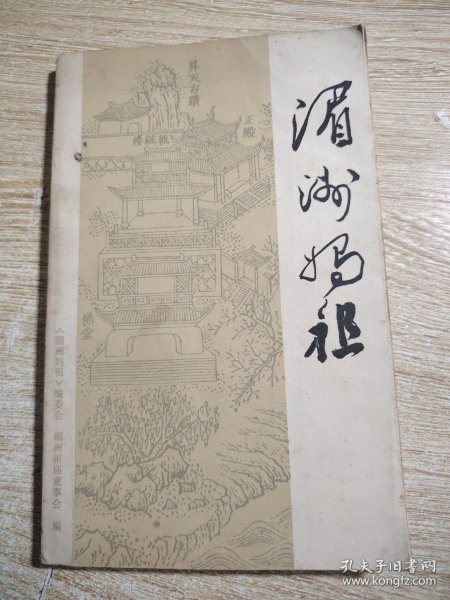 湄洲妈祖
昇天古蹟
正殿
梳粧楼
佛堂
《湄洲妈祖》编委会 湄洲祖庙董事会 编
孔夫子旧书网
www.kongfz.com